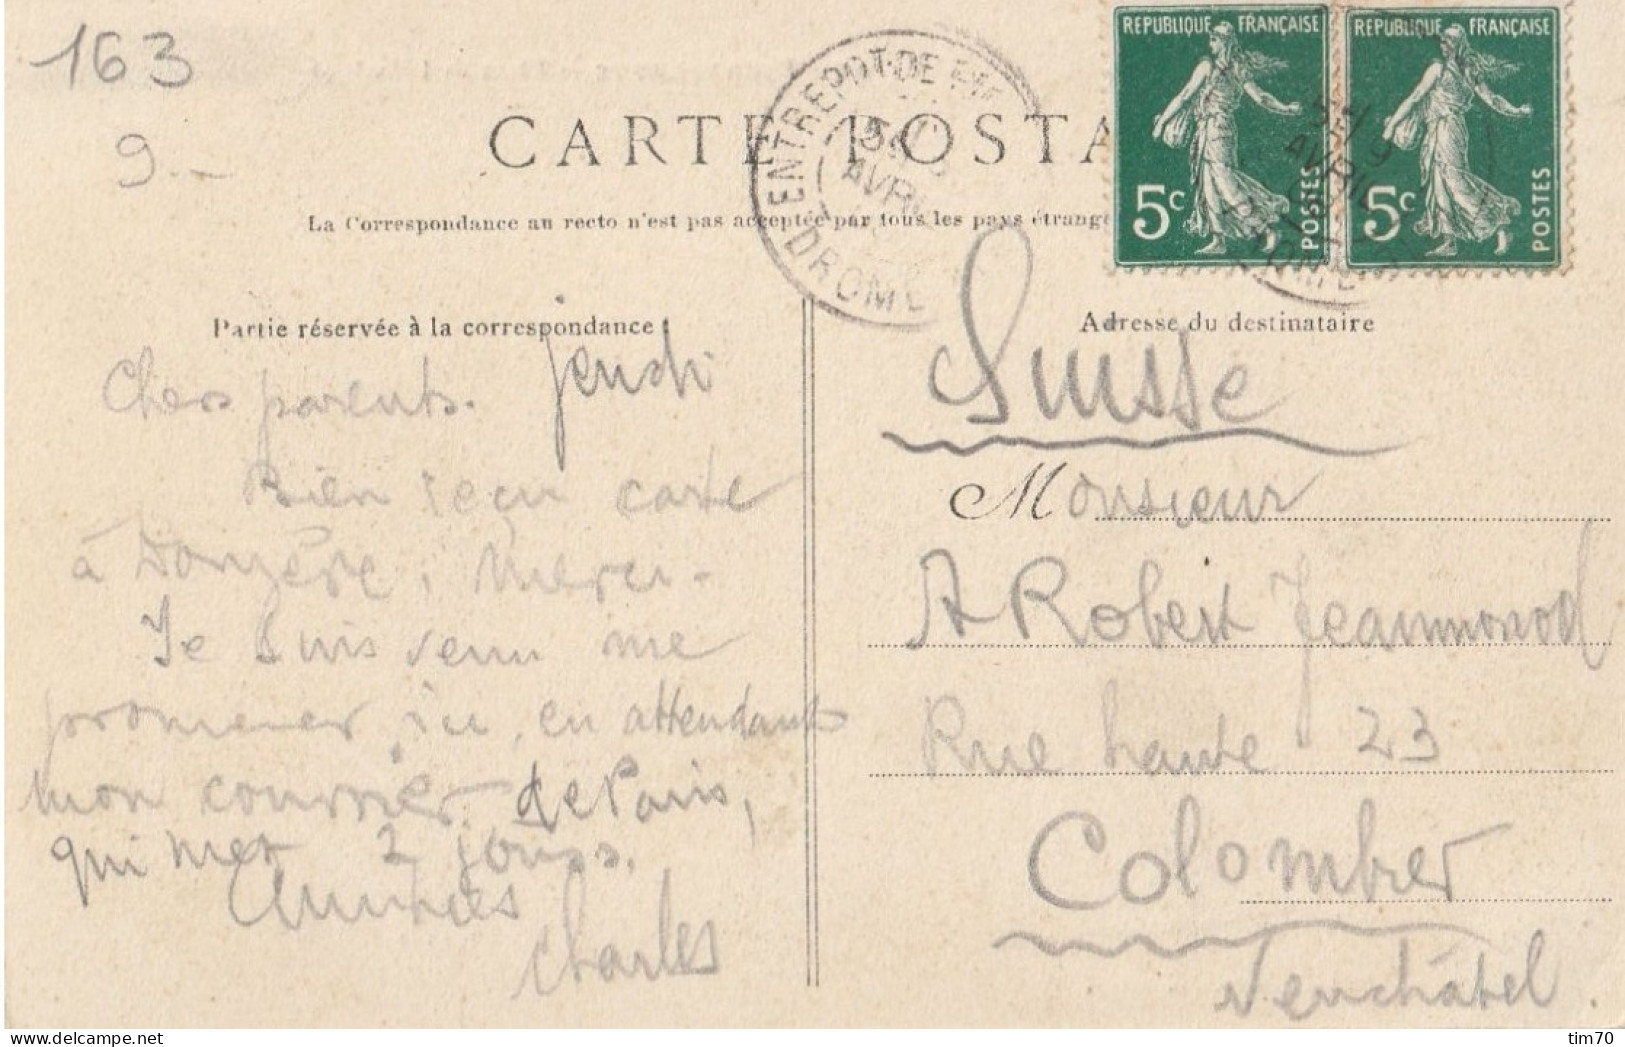 163
9.-
CARTE POSTA
REPUBLIQUE FRANÇAISE
5c
POSTES
REPUBLIQUE FRANÇAISE
5c
POSTES
ENTREPOT-DE
AVRIL
DROME
La Correspondance au recto n'est pas acceptée par tous les pays étrange
Partie réservée à la correspondance
Jeudi
Chers parents.
Bien reçu carte
à Donzère, merci-
Je suis venu me
promener ici, en attendant
mon courrier de Paris,
qui met 2 jours.
Charles
Adresse du destinataire
Suisse
Monsieur
A Robert Jeanmonod
Rue haute 23
Colombier
Neuchâtel.
tim70